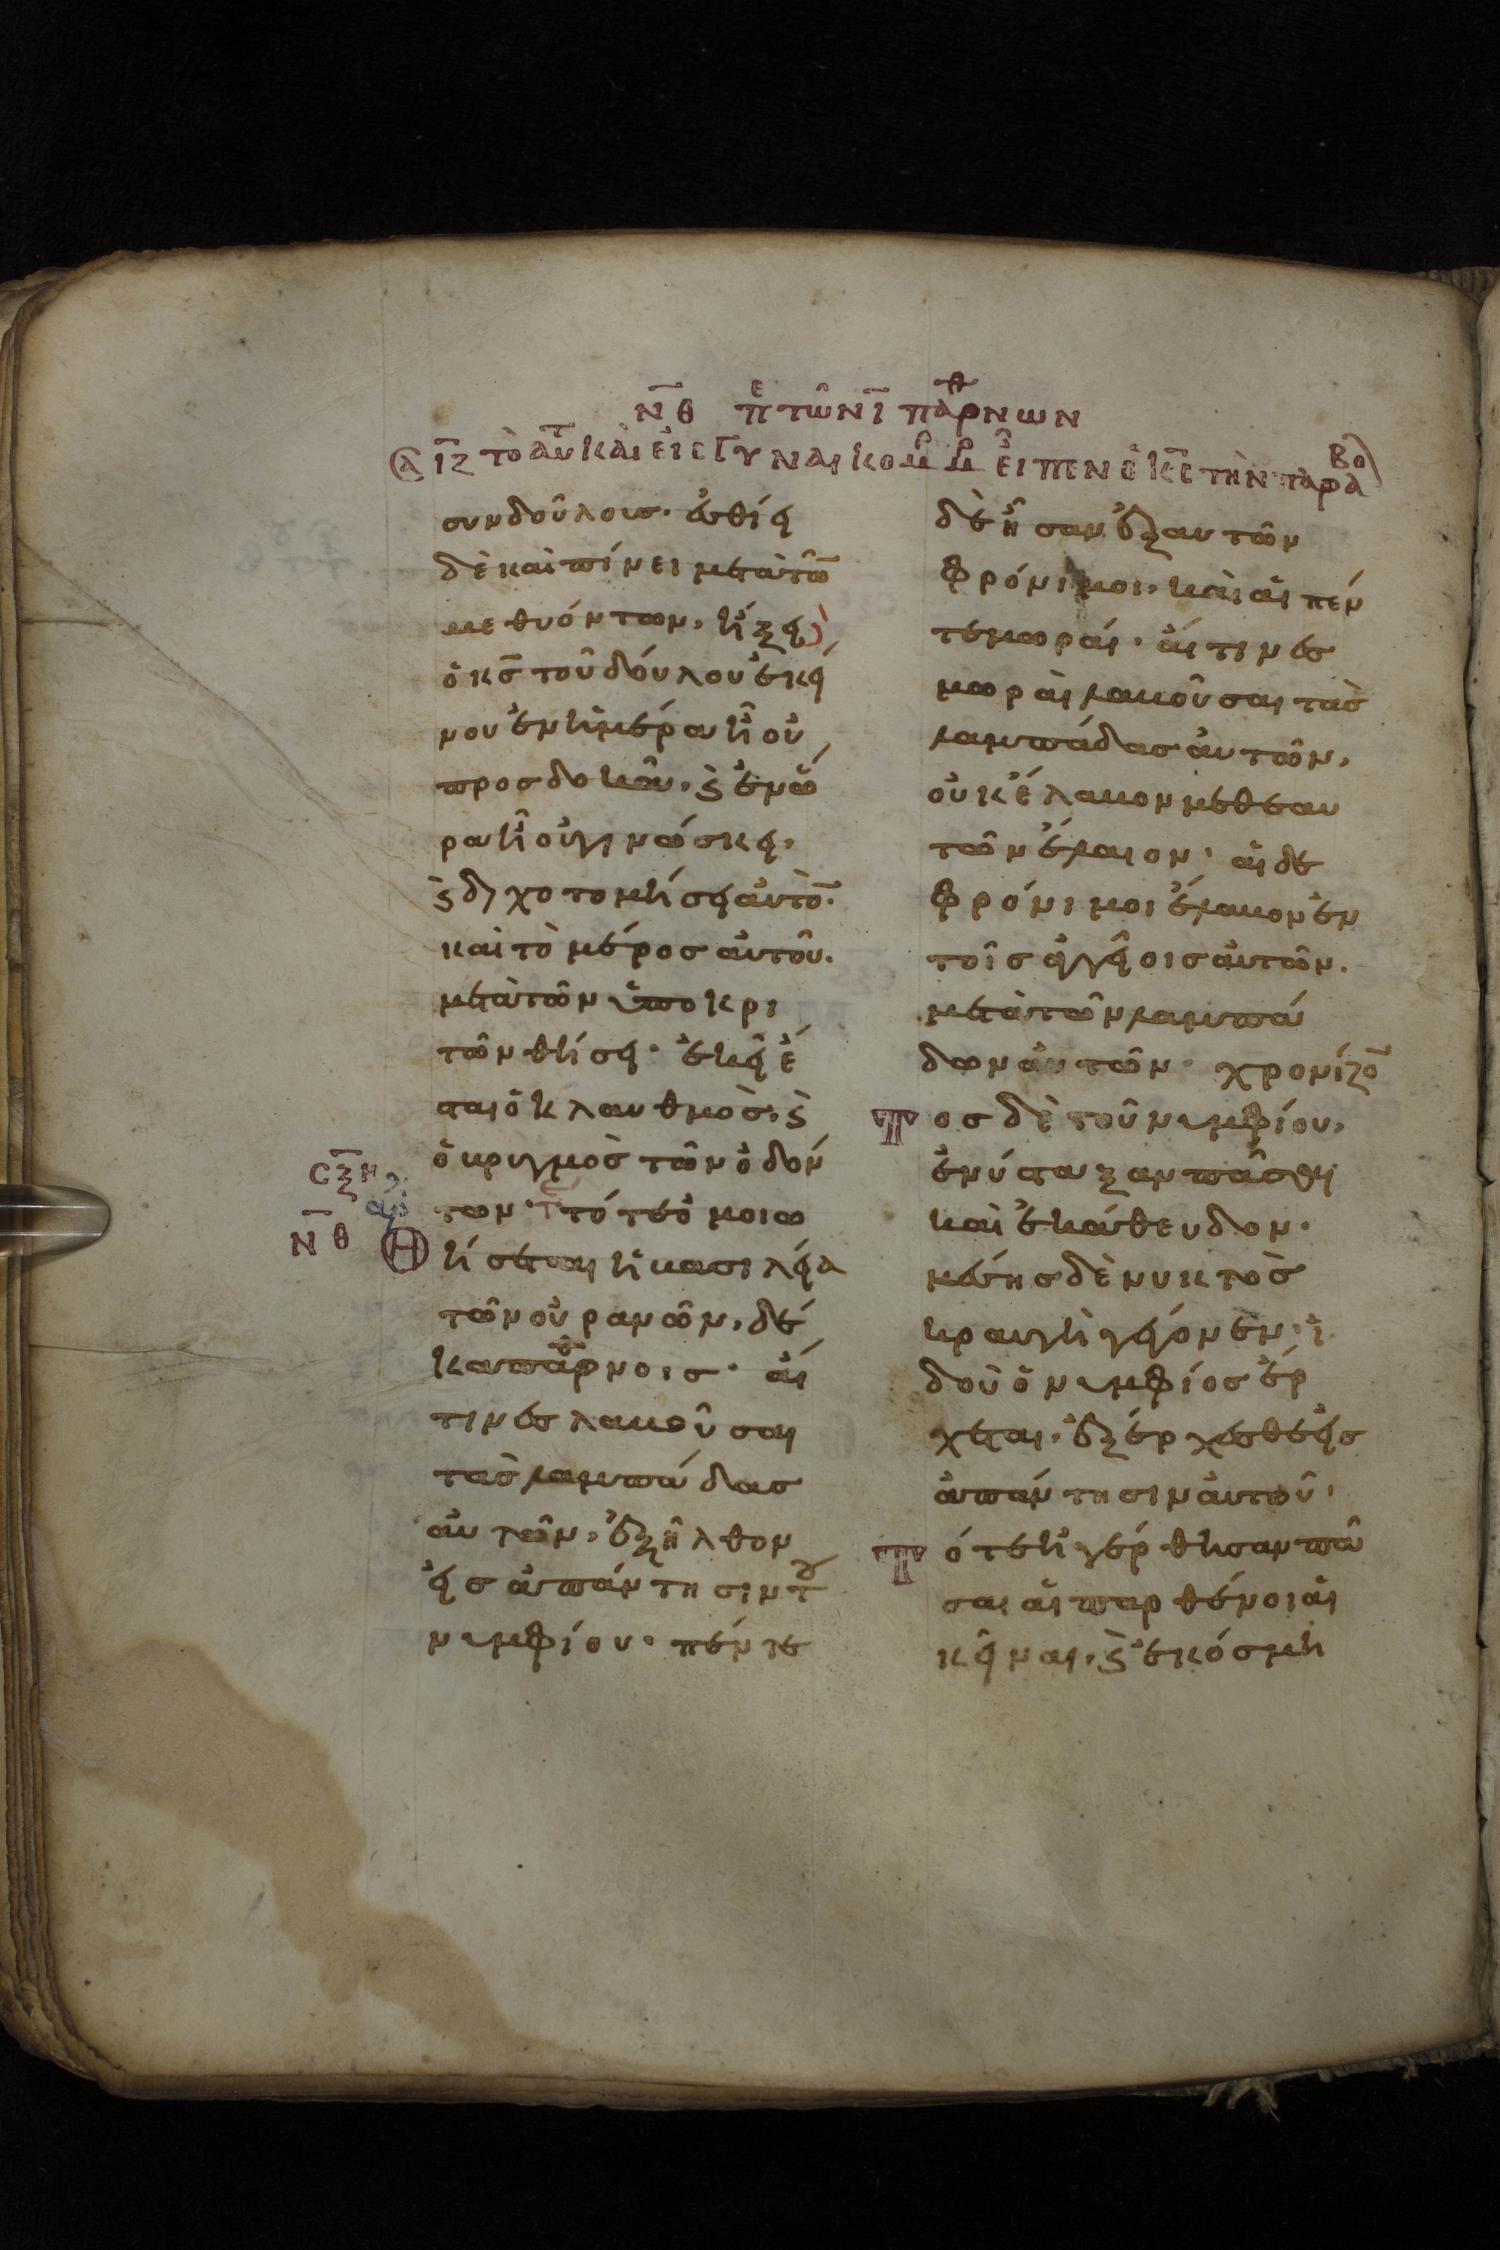 ν̅θ πε τῶν ι̅ παρθνων
Σα ιζ τὸ αυτ καὶ εἰς γυναικο μρ μρ εἶπεν ὁ κς τὴν παραβο
συνδούλους· ἐσθίει
δὲ καὶ πίνει μετὰ τῶ̅
μεθυόντων, ἥξει
ὁ κς̅ τοῦ δούλου ἐκεί
νου ἐν ἡμέρα ἧ οὐ
προσδοκᾶ, ϗ ἐν ὥ
ρα ἧ οὐ γινώσκει,
ϗ διχοτομήσει αὐτὸ̅.
καὶ τὸ μέρος αὐτοῦ.
μετὰ τῶν ὑποκρι
τῶν θήσει· ἐκεῖ ἔ
σται ὁ κλαυθμὸς, ϗ
ὁ βριγμὸς τῶν ὀδόν
των· τε τότε ὁμοιω
θήσεται ἡ βασιλεία
τῶν οὐρανῶν, δέ
κα παρθνοις· αἵ
τινες λαβοῦσαι
τὰς λαμπάδας
αὐτῶν, ἐξῆλθον
εἰς ἀπάντησιν τοῦ
νυμφίου· πέντε
σξη
αρ
ν̅θ
δὲ ἦσαν ἐξ αὐτῶν
φρόνιμοι, καὶ αἱ πέν
τε μωραί· αἵτινες
μωραὶ λαβοῦσαι τὰς
λαμπάδας αὐτῶν,
οὐκ ἔλαβον μεθ εαυ
τῶν ἔλαιον· αἱ δε
φρόνιμοι ἔλαβον ἐν
τοῖς ἀγγείοις αὐτῶν.
μετὰ τῶν λαμπά
δων αὐτῶν· χρονίζο̅
Τος δὲ τοῦ νυμφίου,
ἐνύσταξαν πᾶσαι
καὶ ἐκάθευδον·
μέσης δὲ νυκτὸς
κραυγὴ γέγονεν· ἰ
δοὺ ὁ νυμφίος ἔρ
χεται, ἐξέρχεσθε εἰς
ἀπάντησιν αὐτοῦ·
Τότε ἠγέρθησαν πᾶ
σαι αἱ παρθένοι αἱ
κεῖναι, ϗ ἐκόσμη